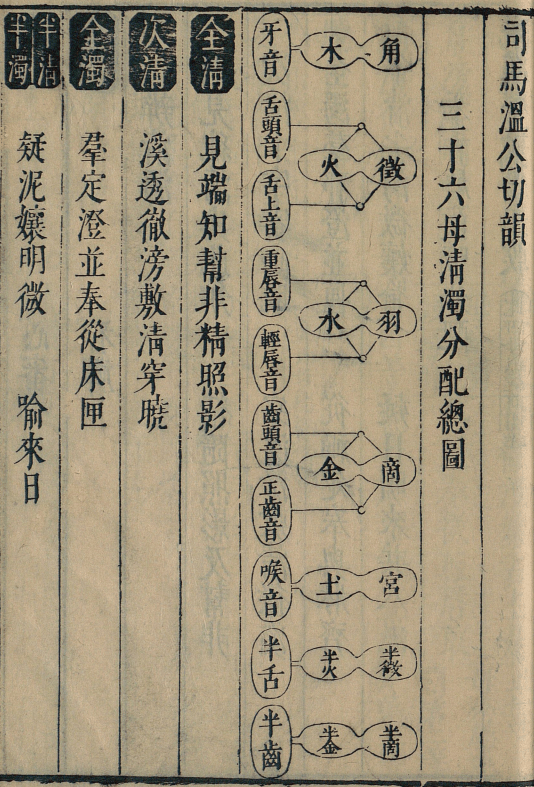 司馬溫公切韻
三十六母清濁分配總圖
角 徵 羽 商 宮 半徵 半商
木 火 水 金 土 半火 半金
牙音 舌頭音 舌上音 重唇音 輕唇音 齒頭音 正齒音 喉音 半舌 半齒
全清 見端知幫非精照影
次清 溪透徹滂敷清穿曉
全濁 羣定澄並奉從床匣
半清半濁 疑泥孃明微 喻來日